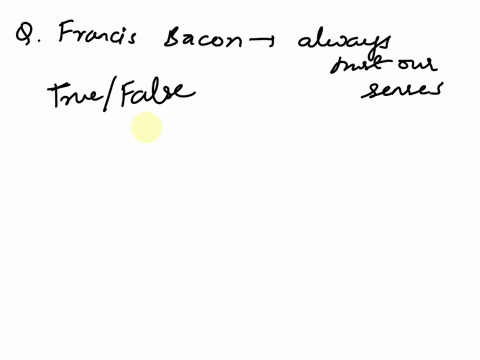 Q. Francis Bacon → always
trust our
True/False senses